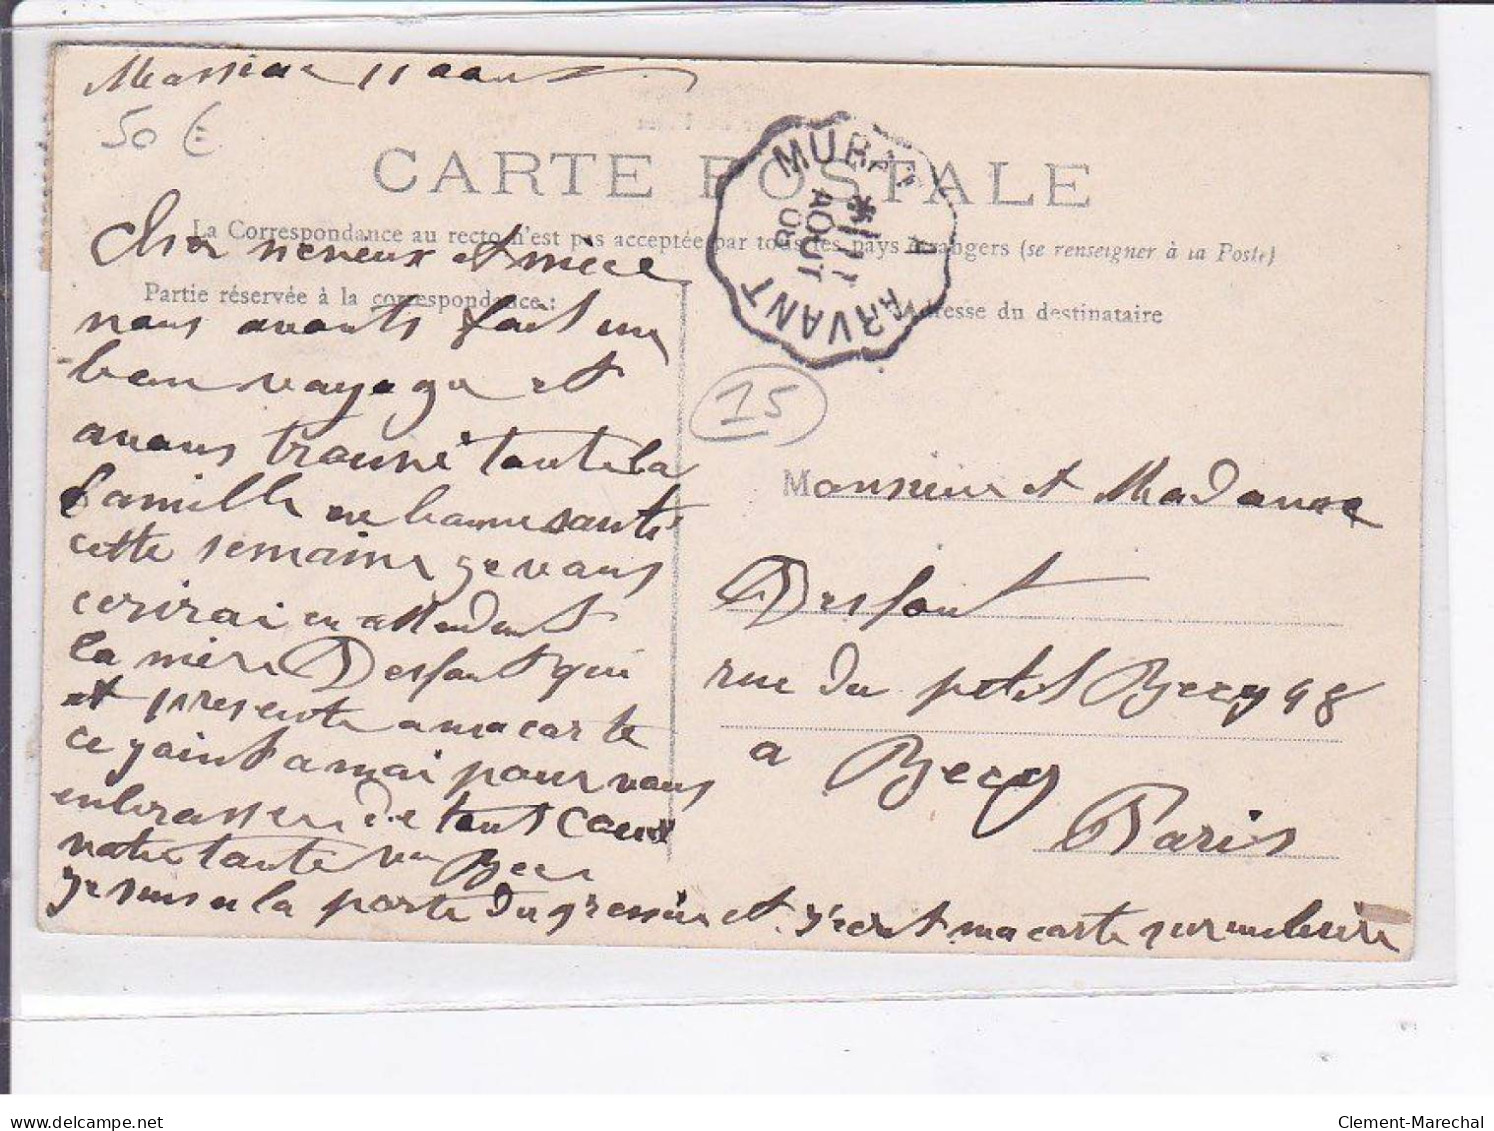 Massiac 11 aout
50 €
CARTE POSTALE
La Correspondance au recto n'est pas acceptée par tous les pays étrangers (se renseigner à la Poste)
Partie réservée à la correspondance :
Adresse du destinataire
MURAT A ARVANT
11
AOUT
08
15
Cher neveux et niece
nous avants fait un
bon voyage et
avons trouvé toute la
famille en bonne santé
cette semaine je vous
ecrirai en attendant
la mère Desfont qui
et presente a ma carte
ce joint a moi pour vous
enbrasser de tout cœur
votre tante
je suis a la porte du et j'ecrit ma carte sur un
Monsieur et Madame
Desfont
rue du petit Bercy 48
a Bercy
Paris
delcampe.net
Clement-Marechal